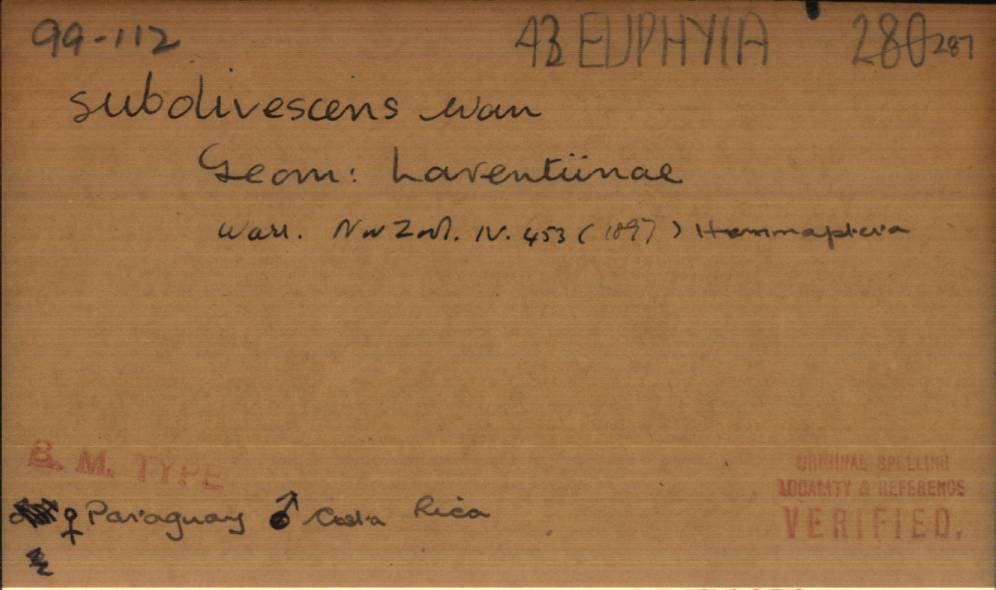 99-112 43 EUPHYIA 280 287
subolivescens Warr
Geom: Larentiinae
Warr. Nov Zool. IV. 453 (1897) Hammaptera
B. M. TYPE
♀ Paraguay ♂ Costa Rica
ORIGINAL SPELLING
LOCALITY & REFERENCE
VERIFIED.